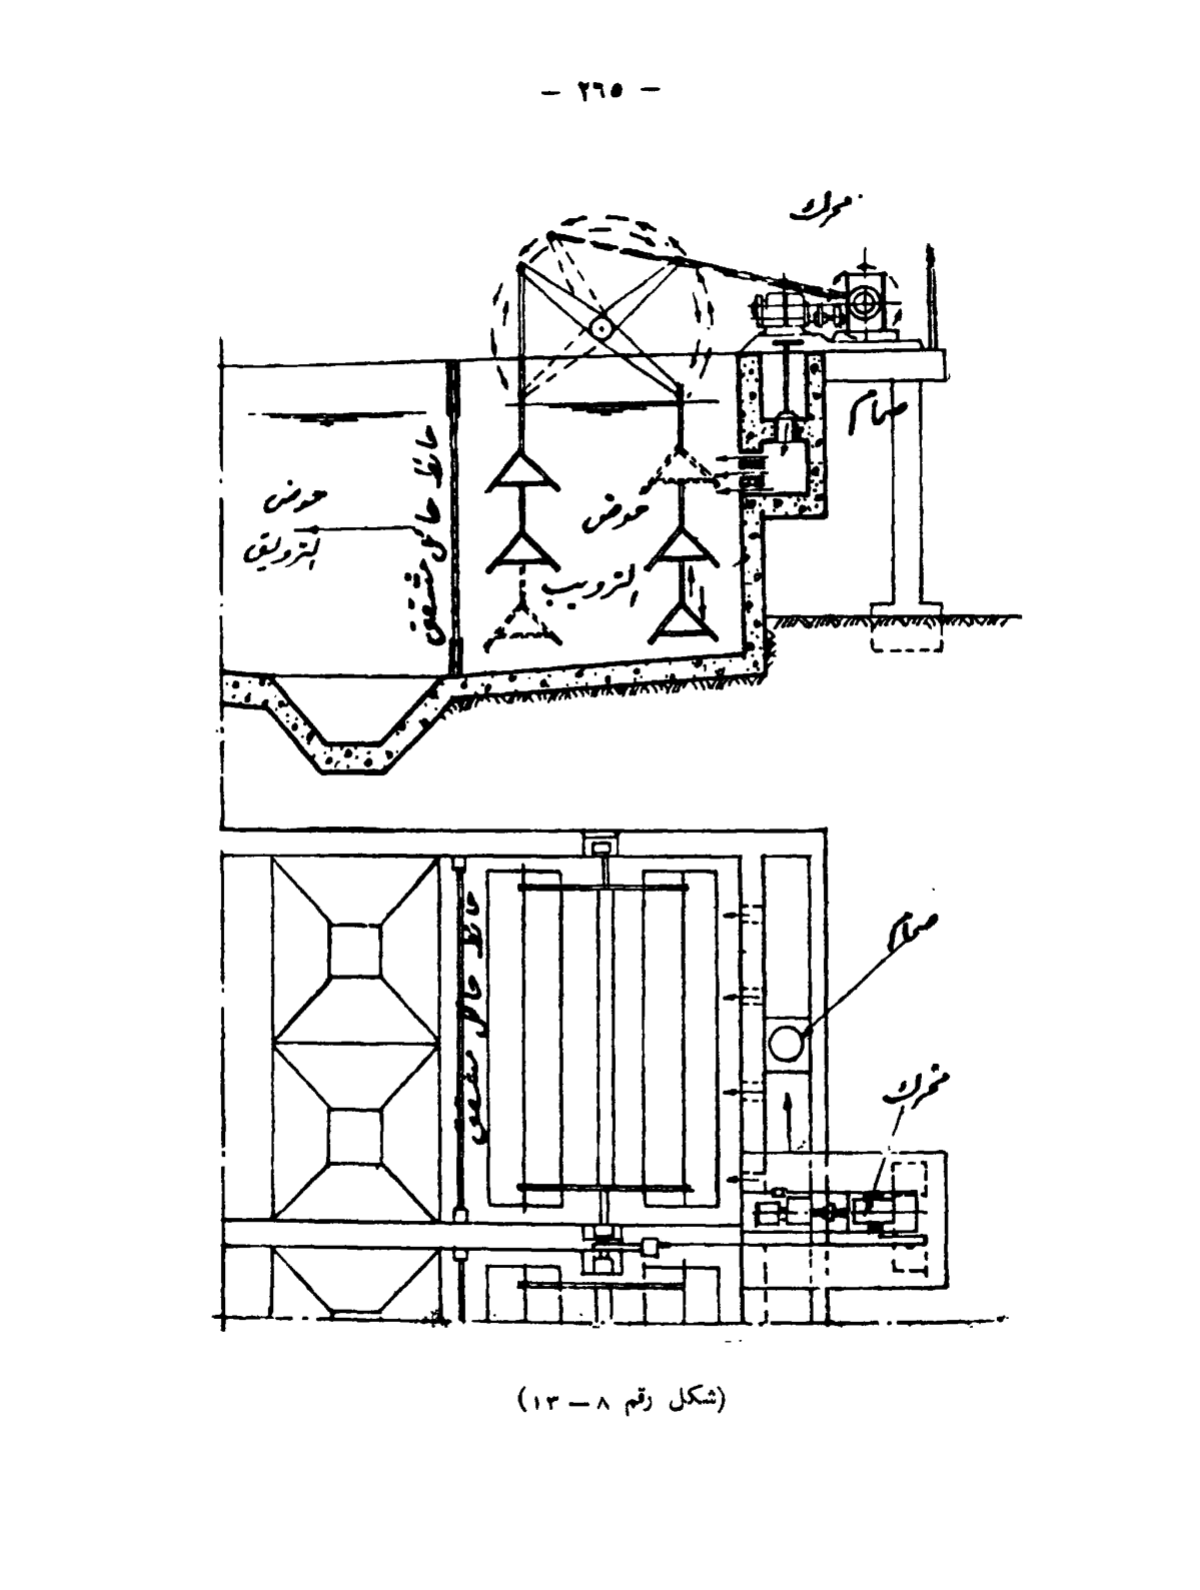 — ٢٦٥ —
محرك
صمام
حوض
الترويق
حائط حائل مشقق
حوض
الترويب
صمام
محرك
حائط حائل مشقق
(شكل رقم ٨ — ١٣)